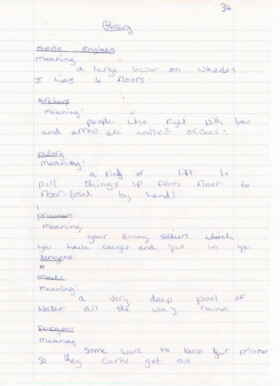 34
History
Meaning
a large tower on wheels
It has 4 floors
Archers
Meaning
people who fight with bow
and arrow
pulley
Meaning
a kind of lift to
pull things up from floor to
floor by hand
prisoner
Meaning
your enemy soldiers which
you have caught and put in
dungeon
moat
Meaning
a very deep pool of
water all the way round
Dungeon
Meaning
some where to keep your prisoner
so they can't get out